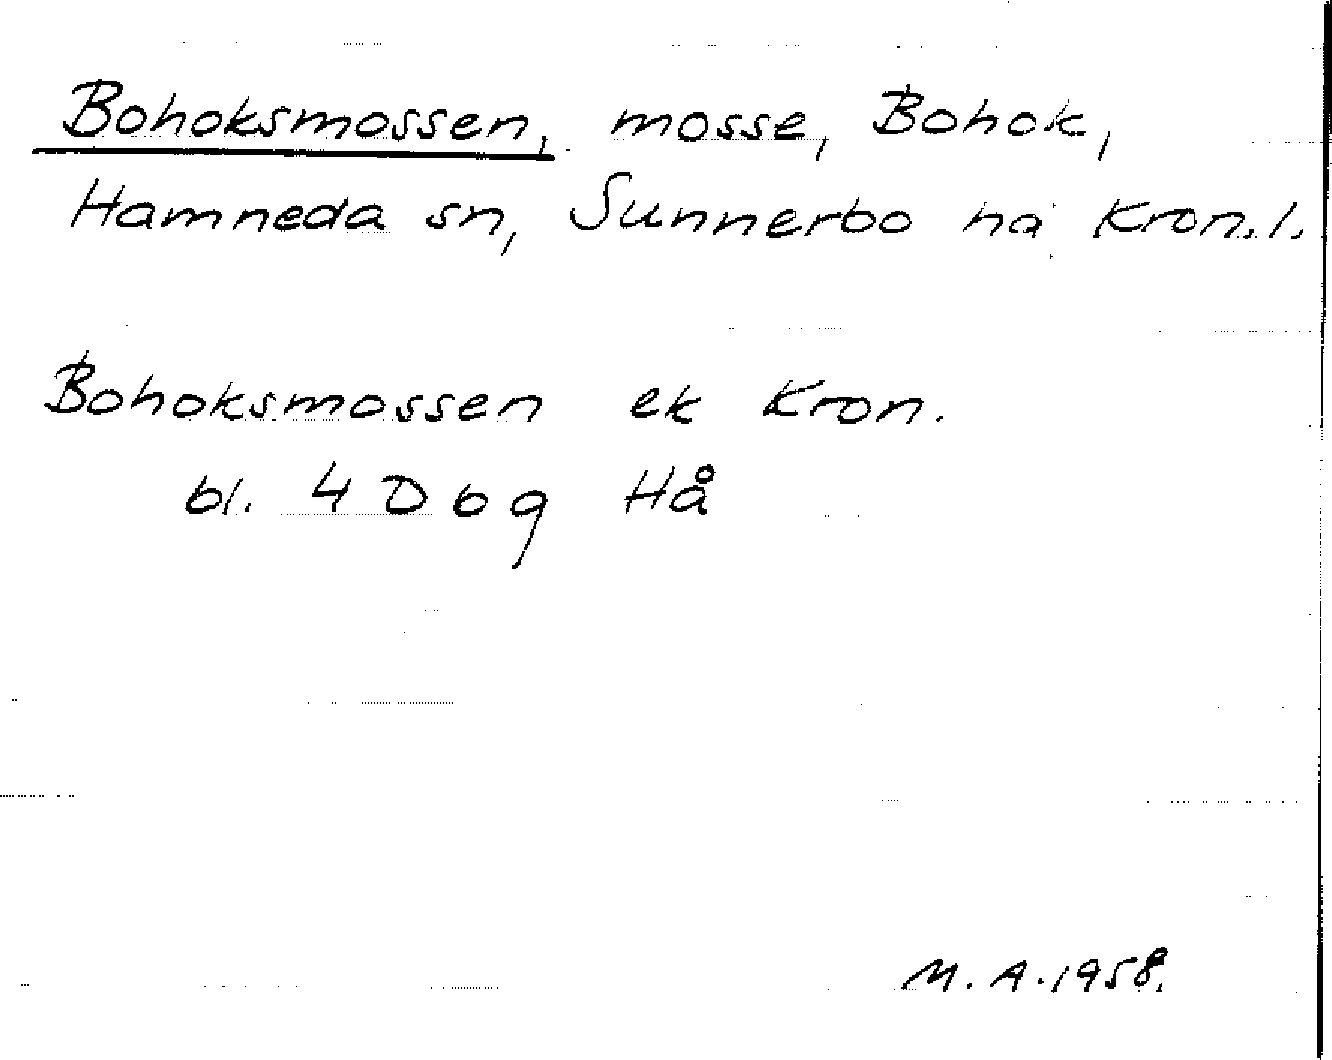 Bohoksmossen, mosse, Bohok,
Hamneda sn, Sunnerbo hd Kron.l.
Bohoksmossen ek Kron.
bl. 4 D b g Hå
M.A. 1958.